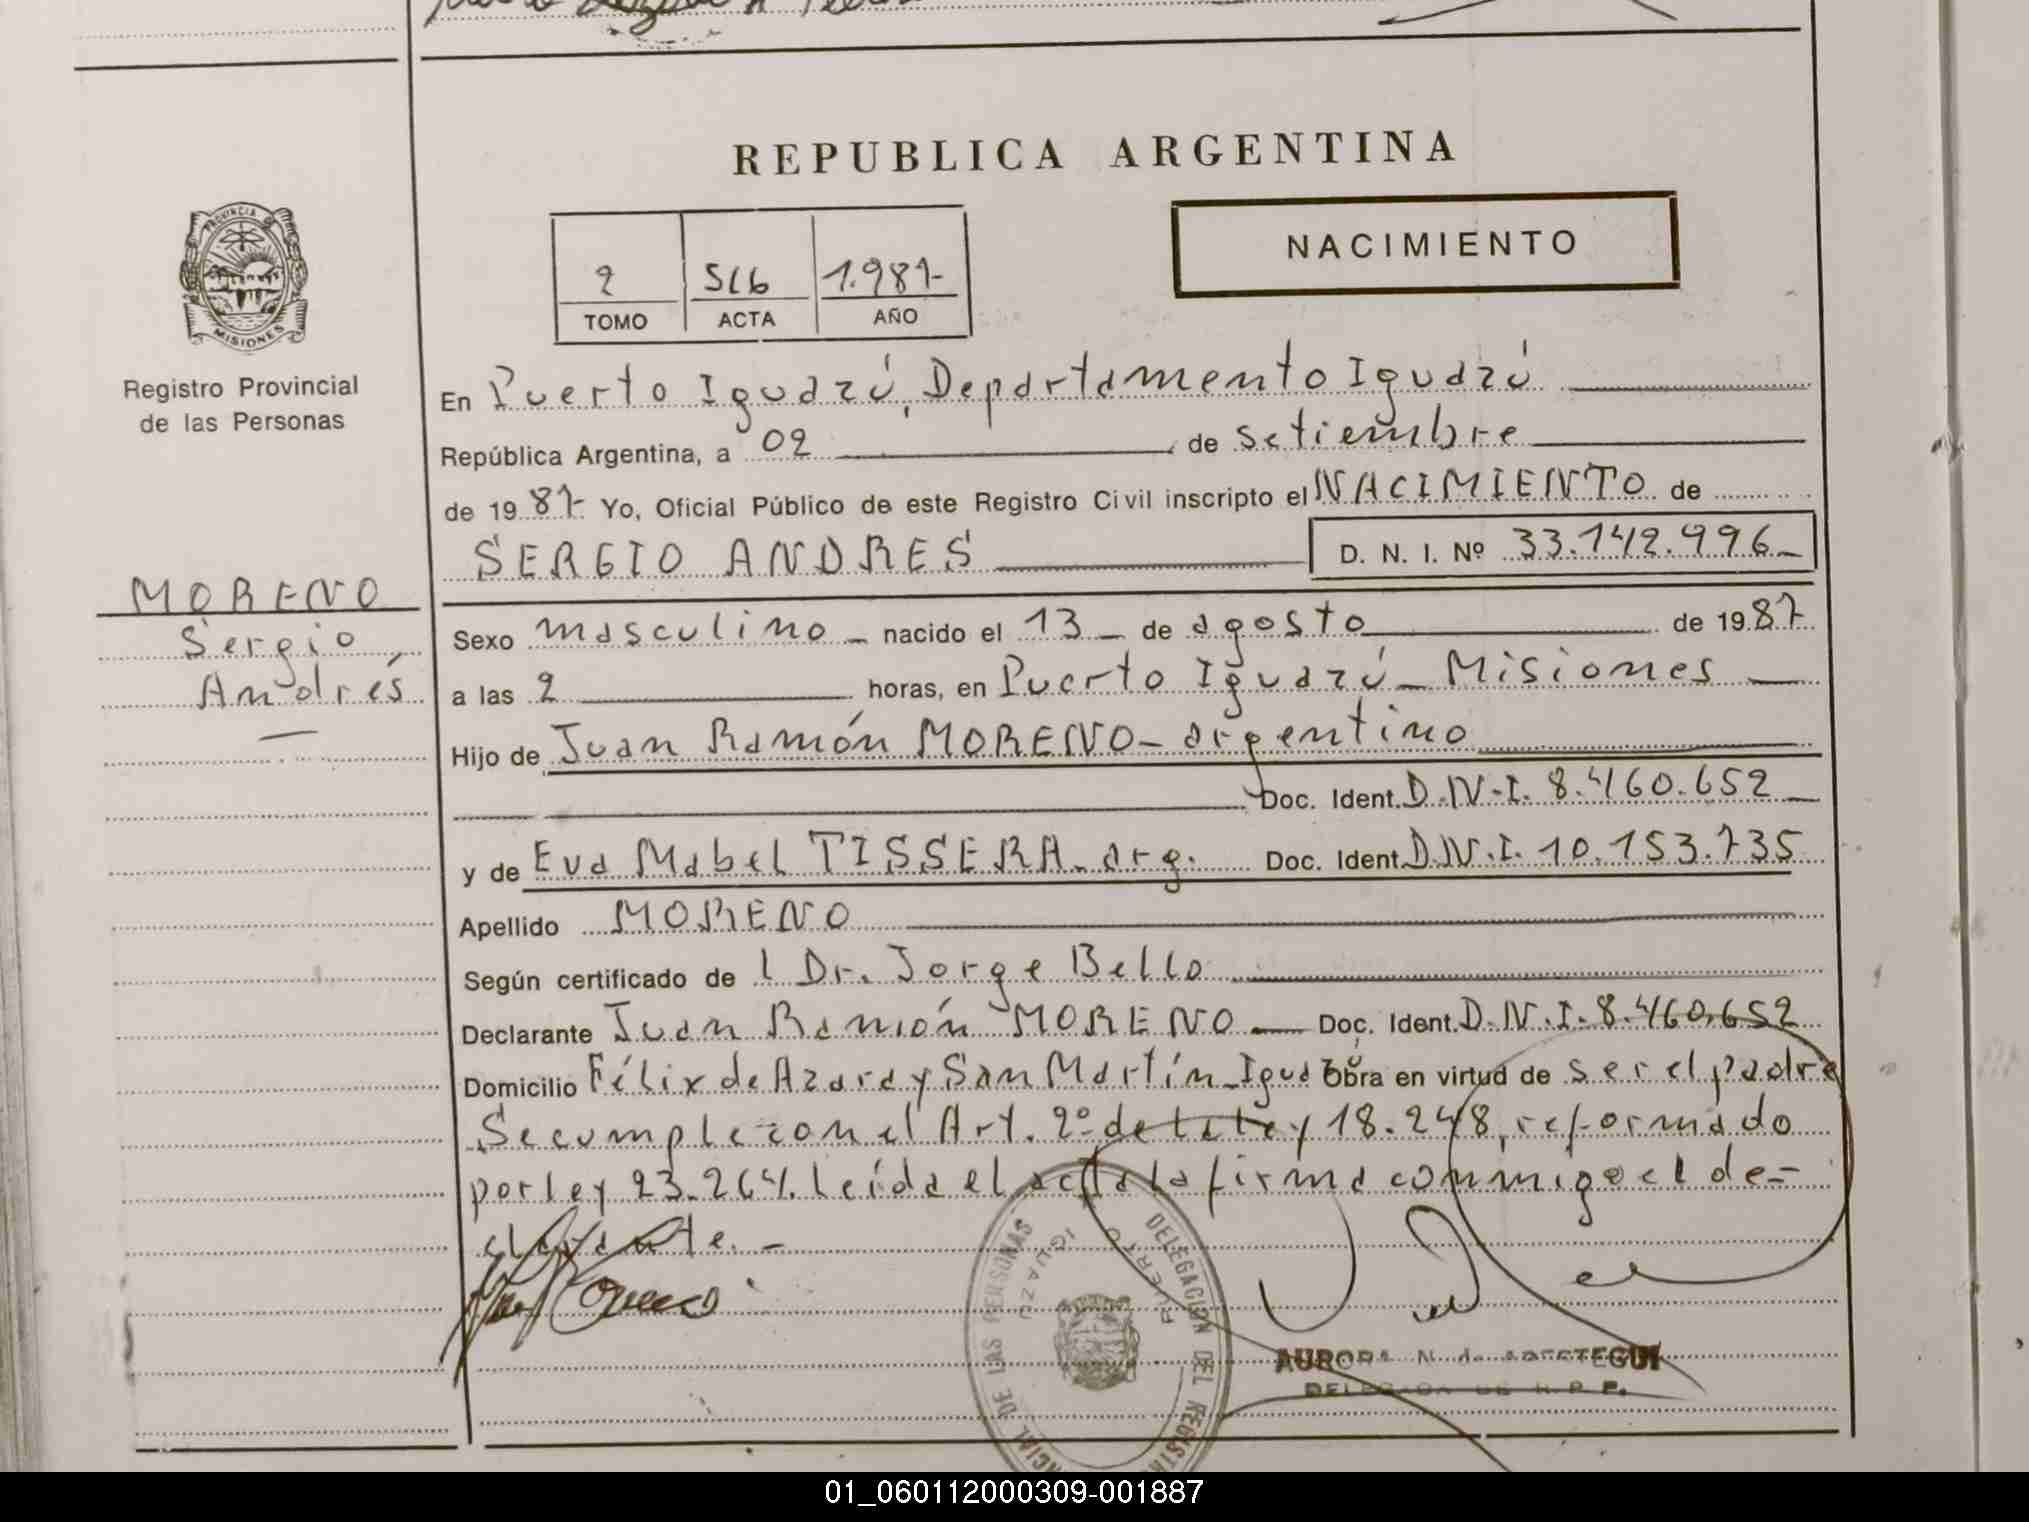 REPUBLICA ARGENTINA
NACIMIENTO
2 516 1.987-
TOMO ACTA AÑO
PROVINCIA DE
MISIONES
Registro Provincial
de las Personas
MORENO
Sergio
Andrés
En Puerto Iguazú, Departamento Iguazú
República Argentina, a 02 de setiembre
de 1987- Yo, Oficial Público de este Registro Civil inscripto el NACIMIENTO de
SERGIO ANDRES D. N. I. Nº 33.142.996_
Sexo masculino _ nacido el 13 _ de agosto de 1987
a las 2 horas, en Puerto Iguazú _ Misiones
Hijo de Juan Ramón MORENO - argentino
Doc. Ident. D.N.I. 8.460.652
y de Eva Mabel TISSERA - arg. Doc. Ident. D.N.I. 10.153.735
Apellido MORENO
Según certificado de l Dr. Jorge Bello
Declarante Juan Ramón MORENO Doc. Ident. D.N.I. 8.460.652
Domicilio Félix de Azara y San Martín - Iguazú Obra en virtud de ser el padre
Se cumple con el Art. 2º de la ley 18.248, reformado
por ley 23.264. leída el acta la firma conmigo el de-
clarante. -
DELEGACION DEL
DE LAS PERSONAS
PUERTO IGUAZU
AURORA N. de
DELEGADA DE R. P. P.
01_060112000309-001887